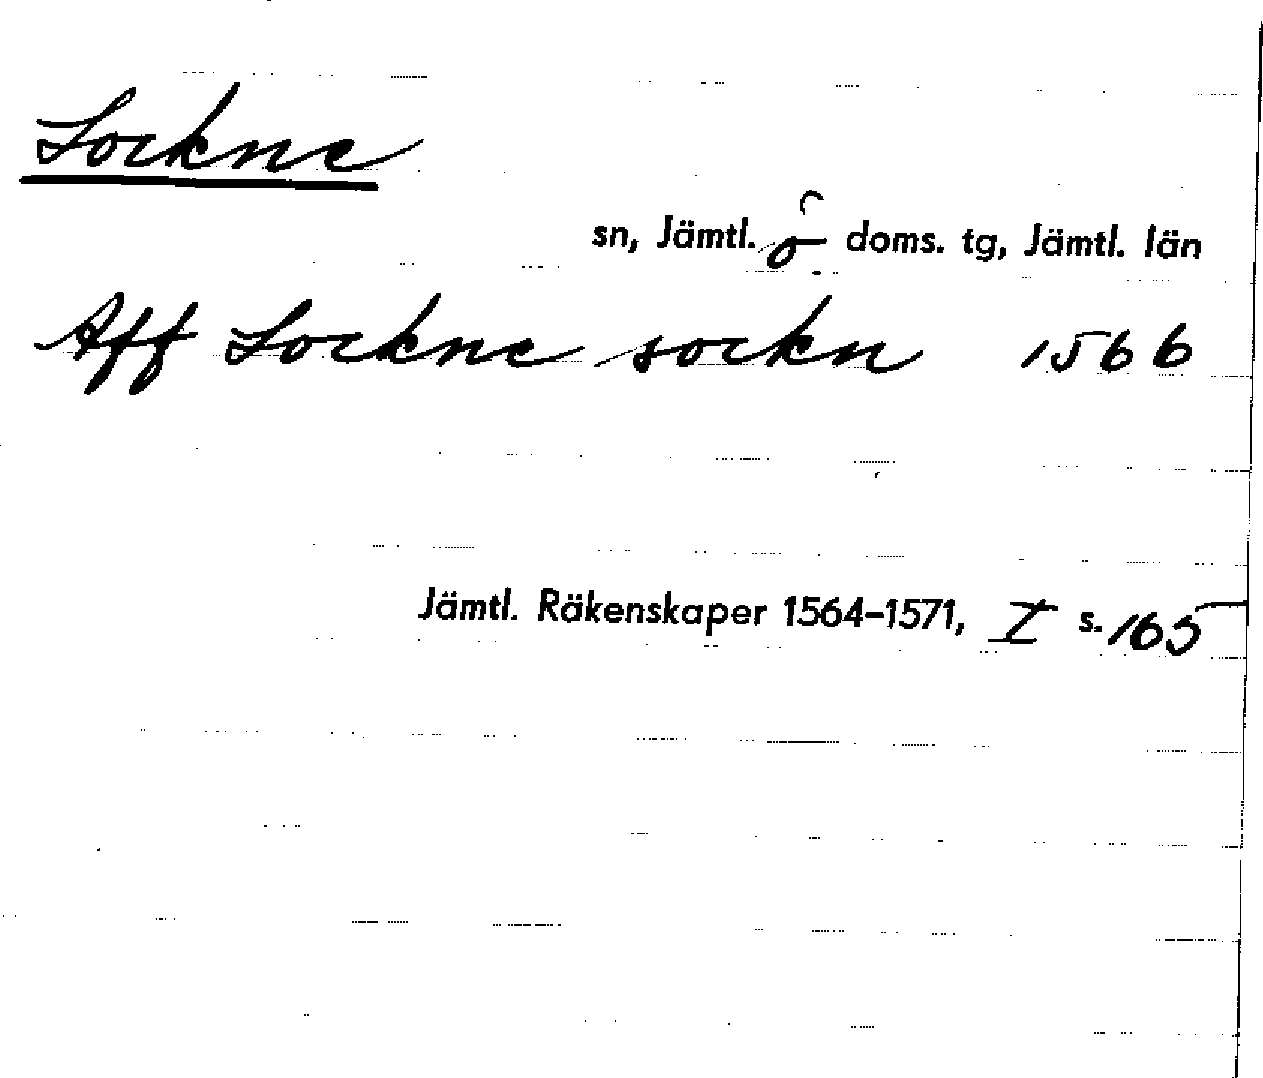 Lockne
sn, Jämtl. ö doms. tg, Jämtl. län
Aff Lockne sockn 1566
Jämtl. Räkenskaper 1564–1571, I s. 165